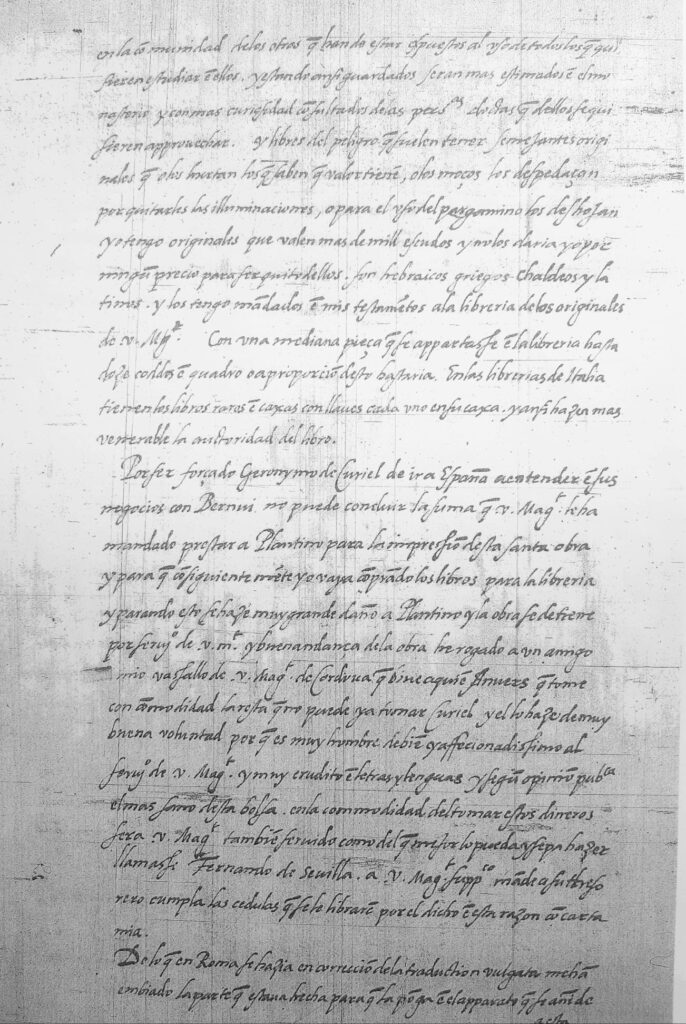 en la comunidad delos otros q̃ han de estar espuestos al vso de todos los q̃ qui
sieren estudiar ẽ ellos. y estando ansi guardados seran mas estimados ẽ el mo
nasterio y con mas curiosidad cõsultados de las pers.ᵃˢ doctas q̃ dellos se qui
sieren approvechar. y libres del peligro q̃ suelen tener semejantes origi
nales q̃ o los hurtan los q̃ saben q̃ valor tienẽ, o los moços los despedaçan
por quitarles las illuminaciones, o para el vso del pargamino los deshojan
yo tengo originales que valen mas de mill escudos y no los daria yo por
ningũ precio para ser quito dellos. son hebraicos griegos chaldeos y la
tinos. y los tengo mãdados ẽ mis testamẽtos a la libreria de los originales
de .v. Mgᵗ. Con vna mediana pieça q̃ se appartasse ẽ la libreria hasta
doze cobdos ẽ quadro o a proporciõ desto bastaria. En las librerias de Italia
tienen los libros raros ẽ caxas con llaves cada vno en su caxa. y ansi hazen mas
venerable la auctoridad del libro.
Por ser forçado Geronymo de Curiel de ir a España a entender ẽ sus
negocios con Bernui no puede concluir la suma q̃ .v. Magᵗ. le ha
mandado prestar a Plantino para la impressiõ desta santa obra
y para q̃ cõsiguiente mẽte yo vaya cõprãdo los libros para la libreria
y parando esto se haze muy grande daño a Plantino y la obra se detiene
por seruj.º de .v. m.ᵗ y buenandança de la obra he rogado a vn amigo
mio vasallo de .v. Magᵗ. de Cordoua q̃ biue aqui ẽ Anvers q̃ tome
con cõmodidad la resta q̃ no puede ya tomar Curiel y el lo haze de muy
buena voluntad por q̃ es muy hombre de biẽ y affecionadissimo al
seruj.º de .v. Magᵗ. y muy erudito ẽ letras y lenguas y segũ opiniõ pub.ᶜᵃ
el mas sano desta bolsa. en la commodidad del tomar estos dineros
sera .v. Magᵗ. tambiẽ seruido como del q̃ mejor lo pueda y sepa hazer
llamasse Fernando de Sevilla. a .V. Magᵗ. supp.ᶜᵒ mãde a su theso
rero cumpla las cedulas q̃ se le librarẽ por el dicho ẽ esta razon cõ carta
mia.
De lo q̃ en Roma se hazia en correciõ de la traduction vulgata me hã
embiado la parte q̃ estava hecha para q̃ la põga ẽ el apparato q̃ se añide
a esta